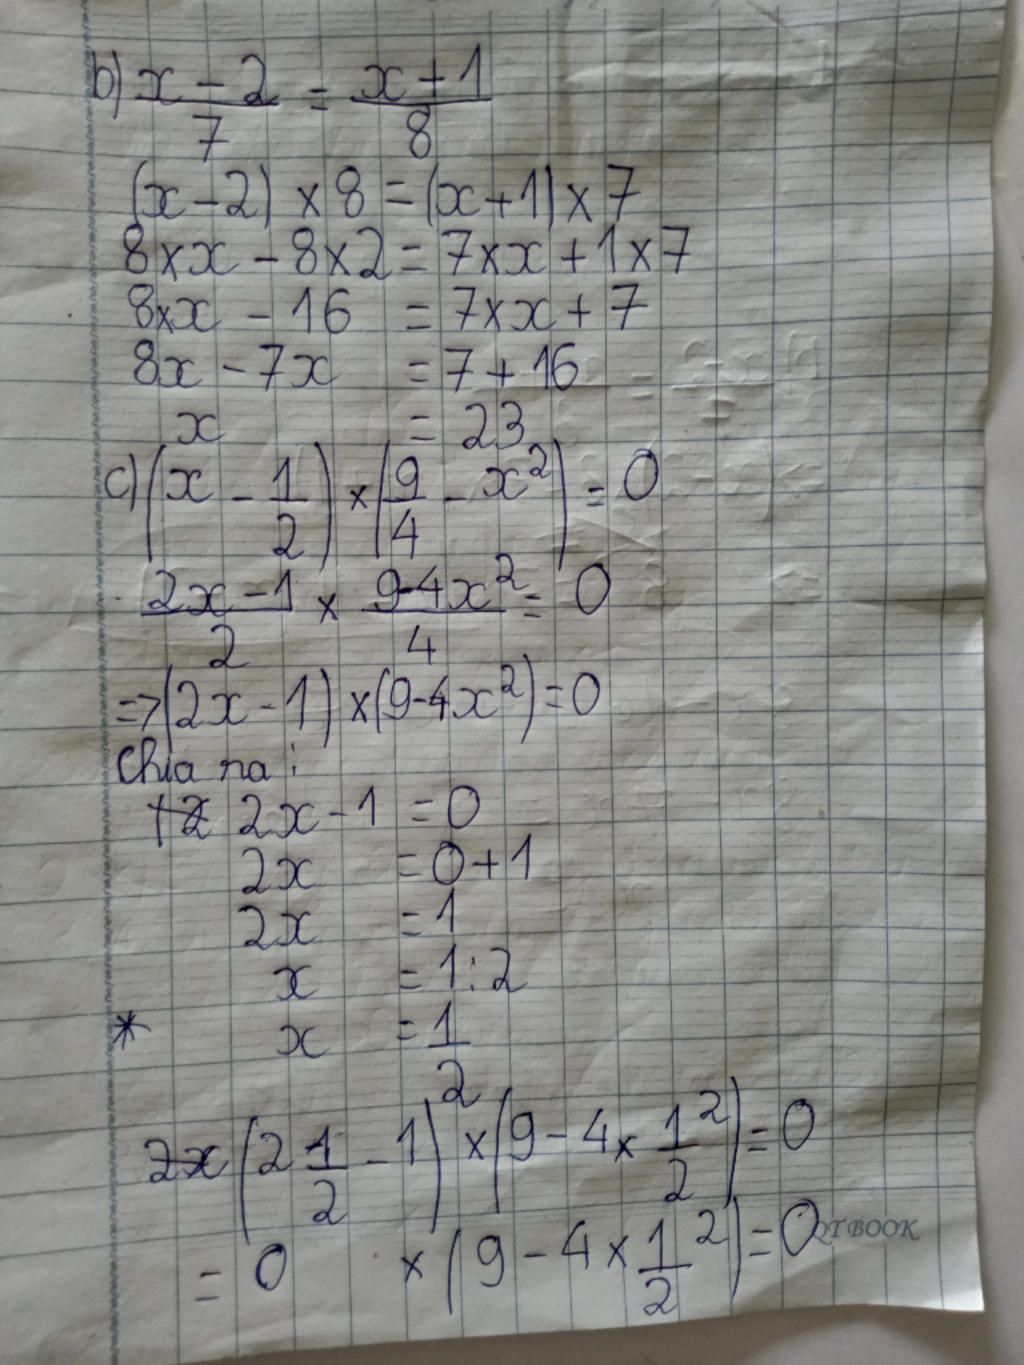 b) \frac{x-2}{7} = \frac{x+1}{8}
(x-2) × 8 = (x+1) × 7
8×x - 8×2 = 7×x + 1×7
8×x - 16 = 7×x + 7
8x - 7x = 7 + 16
x = 23
c) (x - \frac{1}{2}) × (\frac{9}{4} - x²) = 0
\frac{2x-1}{2} × \frac{9-4x²}{4} = 0
=> (2x - 1) × (9-4x²) = 0
Chia ra :
2x - 1 = 0
2x = 0 + 1
2x = 1
x = 1 : 2
* x = \frac{1}{2}
(2 \frac{1}{2} - 1) × (9 - 4 × \frac{1}{2}²) = 0
= 0 × (9 - 4 × \frac{1}{2}²) = 0
QTBOOK